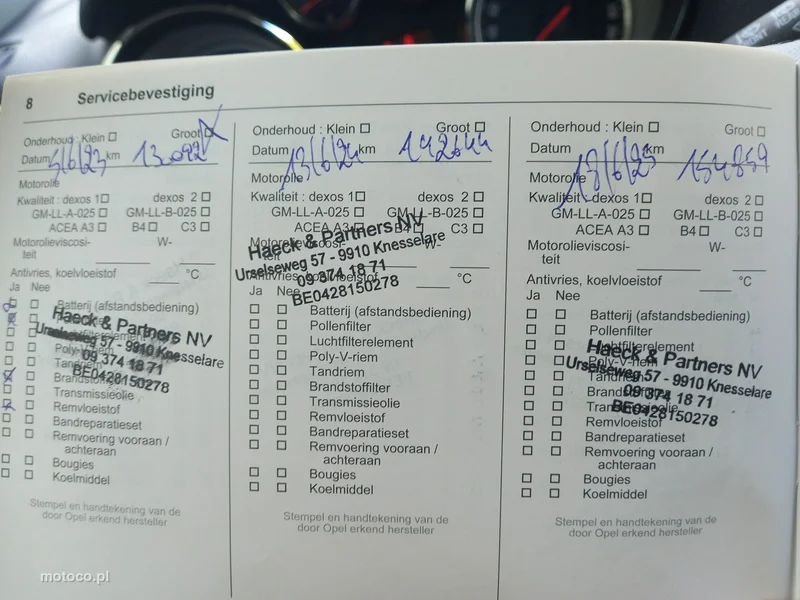 8 Servicebevestiging
Onderhoud : Klein Groot
Datum 5/6/23 km
Motorolie
Kwaliteit : dexos 1 dexos 2
GM-LL-A-025 GM-LL-B-025
ACEA A3 B4 C3
Motorolieviscosi-
teit W-
Antivries, koelvloeistof °C
Ja Nee
Batterij (afstandsbediening)
Haeck & Partners NV
57 - 9910 Knesselare
09 374 18 71
BE0428150278
Poly-V-riem
Tandriem
Brandstoffilter
Transmissieolie
Remvloeistof
Bandreparatieset
Remvoering vooraan /
achteraan
Bougies
Koelmiddel
Stempel en handtekening van de
door Opel erkend hersteller
Onderhoud : Klein Groot
Datum 13/6/24 km 142644
Motorolie
Kwaliteit : dexos 1 dexos 2
GM-LL-A-025 GM-LL-B-025
ACEA A3 B4 C3
Motorolieviscosi-
teit W-
Haeck & Partners NV
Urselseweg 57 - 9910 Knesselare
09 374 18 71
BE0428150278
Antivries, koelvloeistof °C
Ja Nee
Batterij (afstandsbediening)
Pollenfilter
Luchtfilterelement
Poly-V-riem
Tandriem
Brandstoffilter
Transmissieolie
Remvloeistof
Bandreparatieset
Remvoering vooraan /
achteraan
Bougies
Koelmiddel
Stempel en handtekening van de
door Opel erkend hersteller
Onderhoud : Klein Groot
Datum 13/6/25 km 154859
Motorolie
Kwaliteit : dexos 1 dexos 2
GM-LL-A-025 GM-LL-B-025
ACEA A3 B4 C3
Motorolieviscosi-
teit W-
Antivries, koelvloeistof °C
Ja Nee
Batterij (afstandsbediening)
Pollenfilter
Luchtfilterelement
Haeck & Partners NV
Poly-V-riem
Urselseweg 57 - 9910 Knesselare
Tandriem
09 374 18 71
Brandstoffilter
BE0428150278
Transmissieolie
Remvloeistof
Bandreparatieset
Remvoering vooraan /
achteraan
Bougies
Koelmiddel
Stempel en handtekening van de
door Opel erkend hersteller
motoco.pl